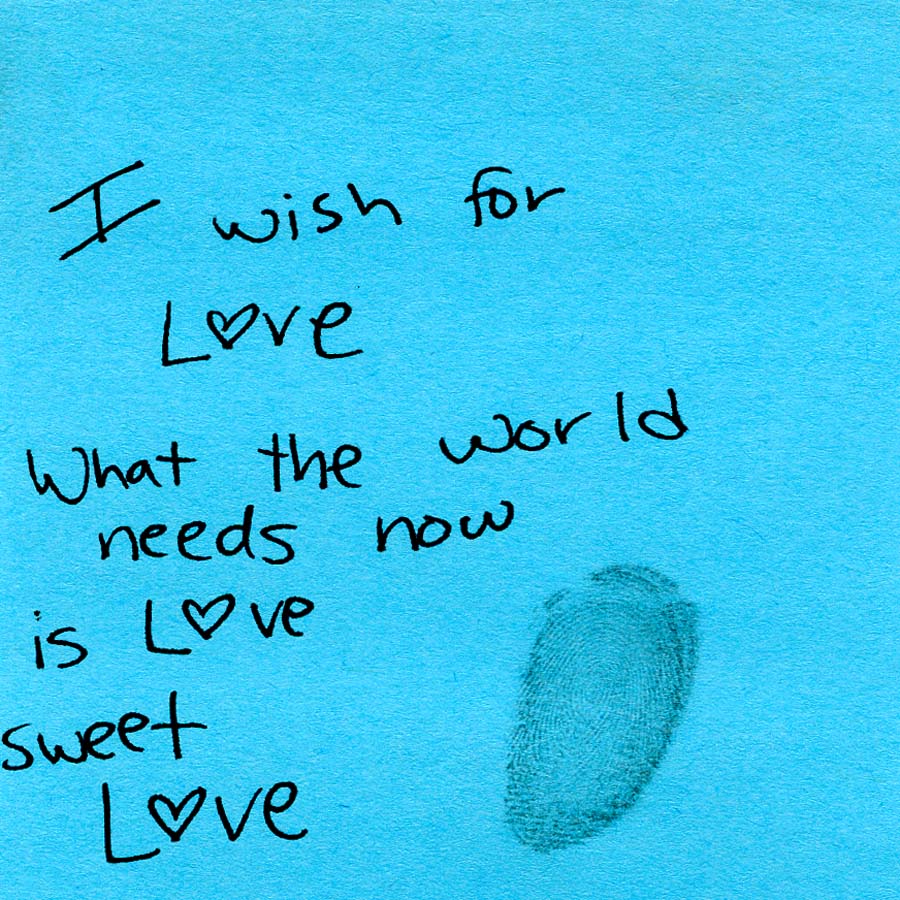 I wish for
L♡ve
What the world
needs now
is L♡ve
sweet
L♡ve